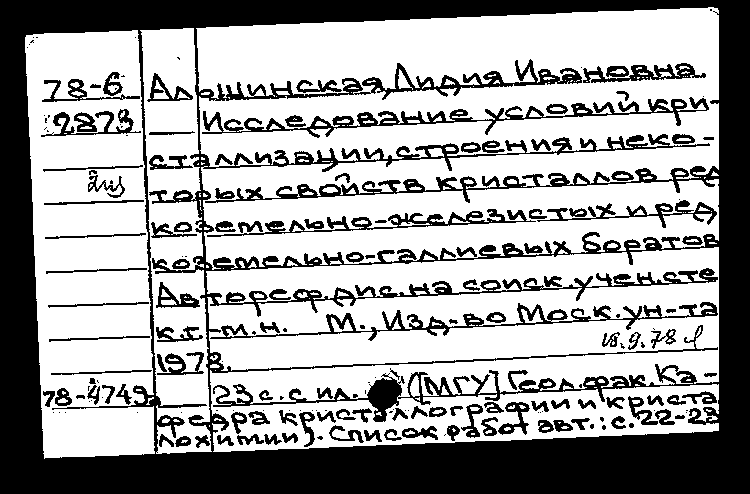 78-6 Альшинская, Лидия Ивановна.
2873 Исследование условий кри-
сталлизации, строения и неко-
торых свойств кристаллов ред
коземельно-железистых и ред
коземельно-галлиевых боратов
Автореф. дис. на соиск. учен. сте
к.г.-м.н. М., Изд-во Моск. ун-та
1978.
18.9.78
78-4749а 23 с. с ил. ([МГУ]. Геол. фак. Ка-
федра кристаллографии и криста
лохимии). Список работ авт.: с. 22-23